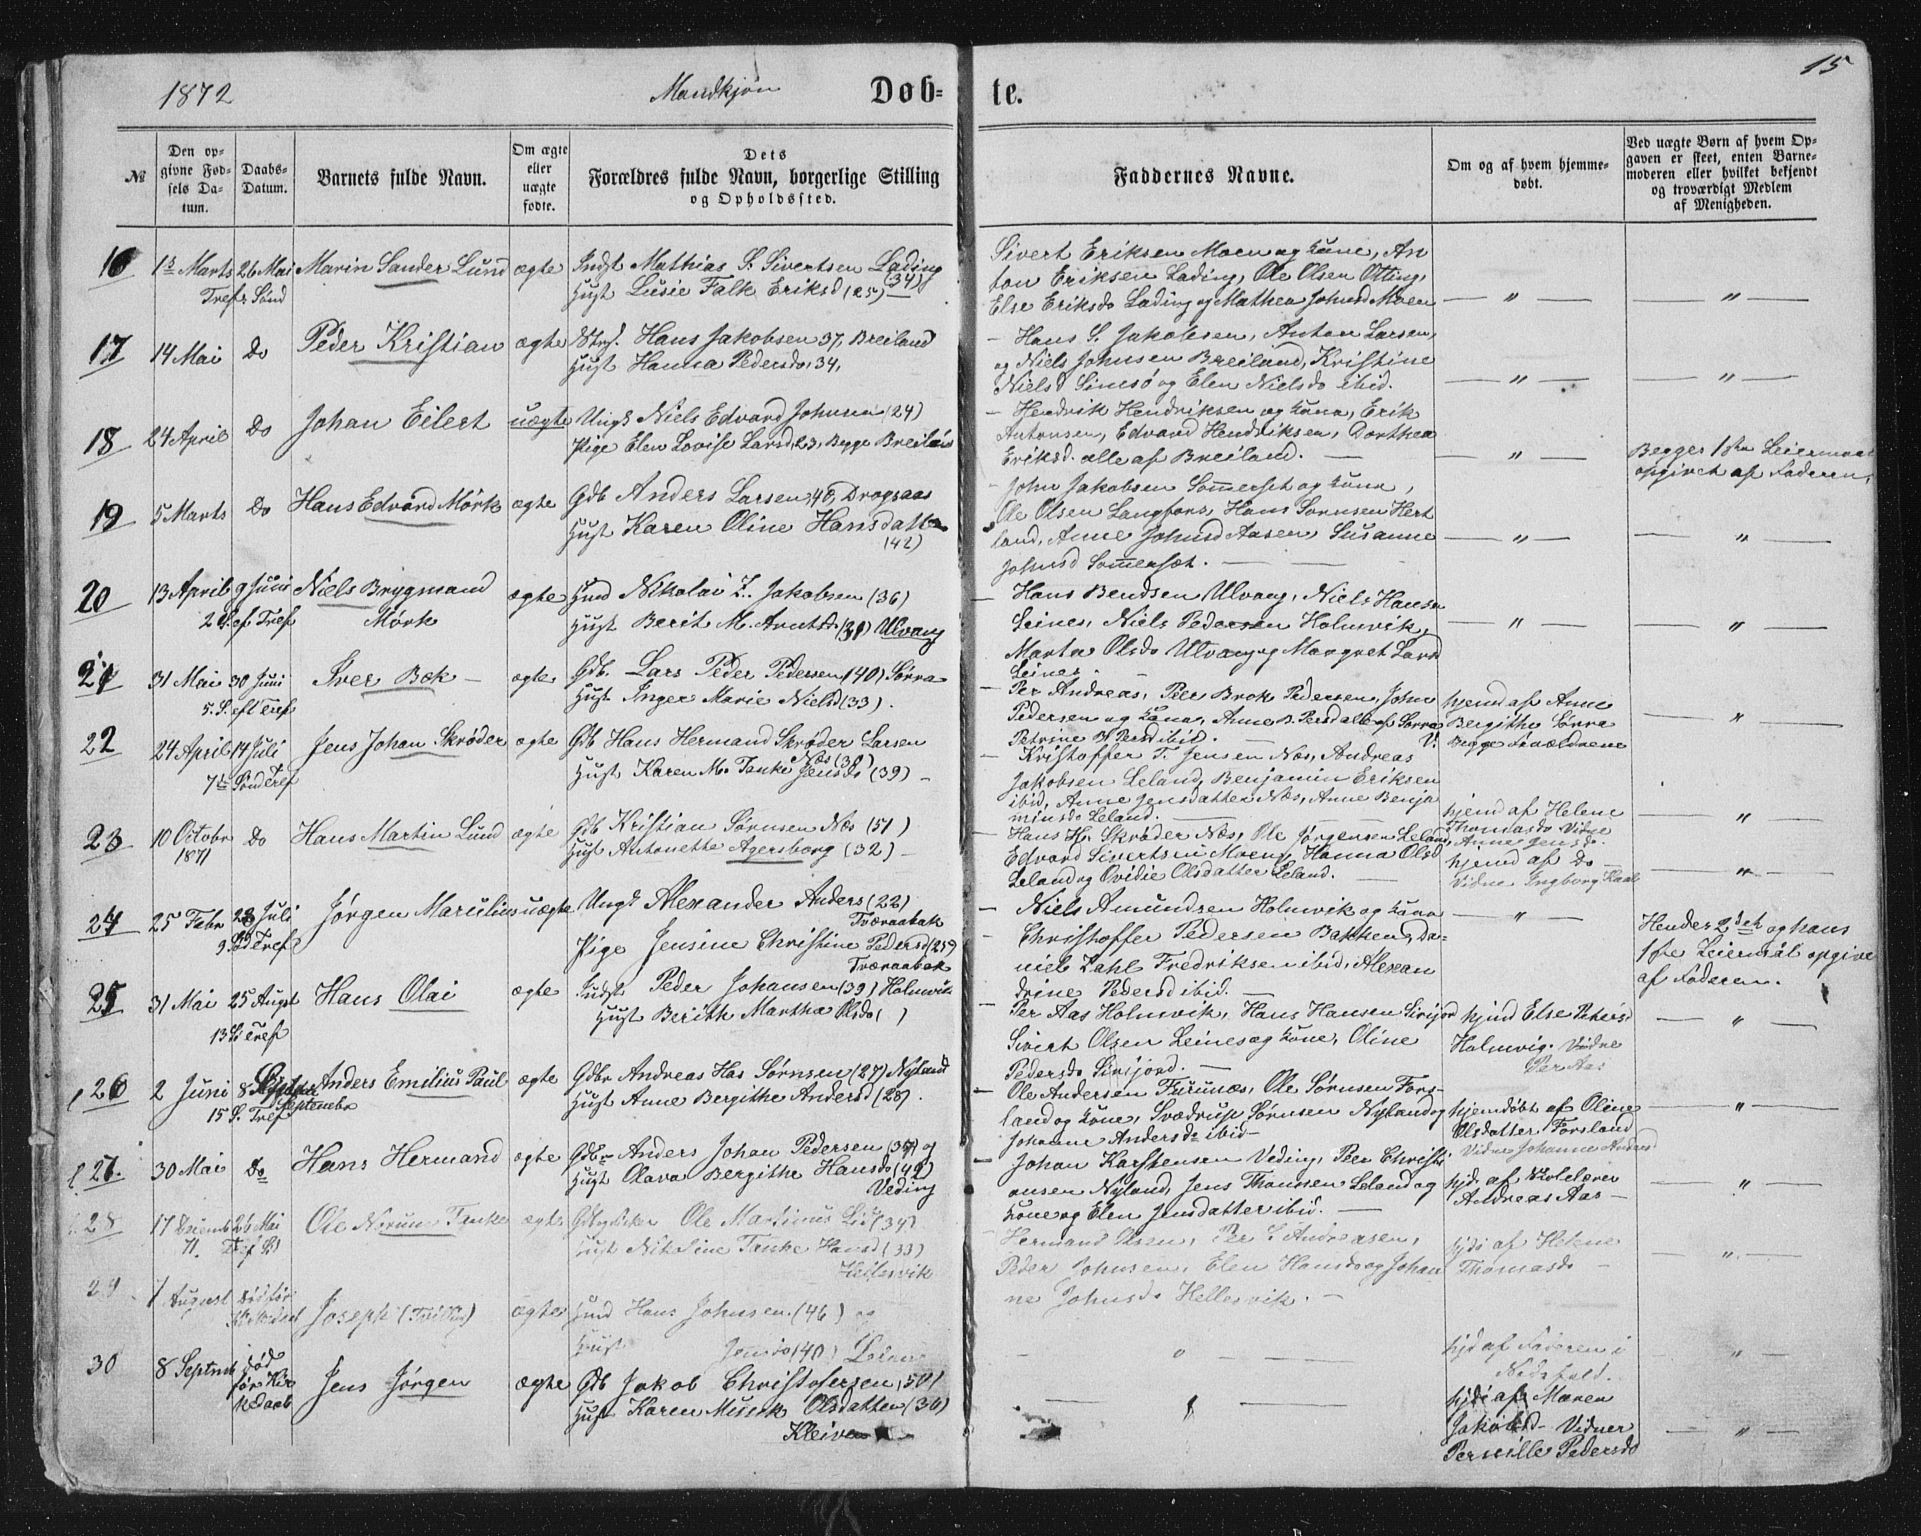 1872
Mandkjøn
Døb-
te.
15
№
Den op-
givne Fød-
sels Da-
tum.
Daabs-
Datum.
Barnets fulde Navn.
Om ægte
eller
uægte
fødte.
Dets
Forældres fulde Navn, borgerlige Stilling
og Opholdssted.
Faddernes Navne.
Om og af hvem hjemme-
døbt.
Ved uægte Børn af hvem Op-
gaven er skeet, enten Barne-
moderen eller hvilket bekjendt
og troværdigt Medlem
af Menigheden.
16
Marts
26 Mai
Tref. Sønd
Marin Sander Lund
ægte
Indst Mathias S. Sivertsen Lading
(34)
Hust Lusie Falk Eriksd (25) —
Sivert Eriksen Moen og Kone, An
ton Eriksen Lading, Ole Olsen Otting,
Else Eriksdr Lading og Mathea Johnsd Moen
— " —
— " —
17
14 Mai
Do
Peder Kristian
ægte
Strs. Hans Jakobsen 37, Breiland
Hust Hanna Pedersdr, 34,
— Hans S. Jakobsen, Anton Larsen,
og Niels Johnsen Breiland, Kristine
Nielsd Simsø og Elen Nielsdr ibid.
— " —
— " —
18
24 April
Do
Johan Eilert
uægte
Ungk Niels Edvard Johnsen (24)
Pige Elen Lovise Larsd, 23, Begge Breiland
— Hendrik Hendriksen og Kone, Erik
Antonsen, Edvard Hendriksen, Dorthea
Eriksd. alle af Breiland. —
— " —
Begges 1ste Leiermaal
opgivet af Faderen,
19
5 Marts
Do
Hans Edvard Mørk
ægte
Gdb Anders Larsen, 40, Dragsaas
Hust Karen Oline Hansdatter
(42)
— John Jakobsen Somerset og Kone,
Ole Olsen Langfors, Hans Sørnsen Hert
land, Anne Johnsd Aasen, Susanne
Johnsd Somerset. —
— " —
— " —
20
13 April
9 Juni
2 S. ef Tref
Niels Brygmand
Mørk
ægte
Hmd Nikolai Z. Jakobsen (36)
Hust Berit M. Arntsdr (31) Ulvang
— Hans Bendsen Ulvang, Niels Hansen
Leines, Niels Pedersen Holmvik,
Marta Olsdr Ulvang og Margret Larsd
Leines.
— " —
— " —
21
31 Mai
30 Juni
5. S. eft Tref
Iver Bæk —
ægte
Gdb. Lars Peder Pedersen (40) Sørra
Hust Inger Marie Nielsd (33).
— Per Andreas, Peer Brok Pedersen, John
Pedersen og Kone, Anne B. Persd alle af Sørra
Petrine B Persd ibid. —
hjemd af Anne
Bergithe Sørra
V. Begge Forældrene
— " —
22
24 April
14 Juli
7de Sønd Tref
Jens Johan Skrøder
ægte
Gdb Hans Hermand Skrøder Larsen
Næs (38)
Hust Karen M. Tanke Jensdr (39) —
— Kristoffer T. Jensen Næs, Andreas
Jakobsen Leland, Benjamin Eriksen
ibid, Anne Jensdatter Næs, Anne Benja
minsdr Leland. —
hjemd af Helene
Thomasdr Vidne
Anne Jensdr.
— " —
23
10 Octobr
1871
Do
Hans Martin Lund
ægte
Gdb Kristian Sørnsen Næs (51)
Hust Antonette Agersborg (32) —
— Hans H. Skrøder Næs, Ole Jørgensen Leland,
Edvard Sivertsen Moen, Hanna Olsd
Leland og Ovidie Olsdatter Leland. —
hjemd af Do —
Vidne Ingborg Kaal
— " —
24
25 Febr
28 Juli
9 S. Tref
Jørgen Marcilius
uægte
Ungk Alexander Anders (22)
Tværaabak
Pige Jensine Christine Pedersd (25)
Tværaabak
— Niels Amundsen Holmvik og Kone
— Christoffer Pedersen Bakken, Da-
niel Zahl Fredriksen ibid, Alexan
drine Pedersd ibid. —
— " —
Hendes 2det og hans
1ste Leiermål opgive
af Faderen.
25
31 Mai
25 Augst
13 S. Tref
Hans Olai
ægte
Indst Peder Johansen (39) Holmvik
Hust Berith Martha Olsdr ( )
— Per Aas Holmvik, Hans Hansen Sirijor
Sivert Olsen Leines og Kone, Oline
Pedersdr Sirijord. —
hjmd Else Petersd
Holmvig. Vidne
Per Aas
— " —
26
2 Juni
8 Septembr
15 S. Tref
Anders Emilius Paul
ægte
Gdbr Andreas Has Sørnsen (27) Nyland
Hust Anne Bergithe Andersd (28).
— Ole Andersen Furunæs, Ole Sørnsen Fors-
land og Kone, Sværdrup Sørnsen Nyland og
Johanne Andersdr ibid—
hjemdøbt af Oline
Olsdatter Forsland
Vidne Johanne Anders
— " —
27.
30 Mai
Do
Hans Hermand
ægte
Gdbr Anders Johan Pedersen (37) og
Hust Olava Bergithe Hansdr (42)
Veding
— Johan Karstensen Veding, Peer Christi
ansen Nyland, Jens Thomsen Leland og
Kone og Elen Jensdatter ibid. —
hjd. af Skolelærer
Andreas Aas —
— " —
28
17 Decemb
71.
26 Mai
Tref S
Ole Norum Tanke
ægte
Ole Martinus (34)
Hust Nikoline Tanke Hansd (33)
Hellesvik
Hermand Olsen, Per L Andreasen,
Peder Johnsen, Elen Hansdr og Johan
ne Johnsdr Hellesvik. —
hjd af Helene
Thomasdr —
— " —
29
7 August
Joseph (Tvilling)
ægte
Hmd Hans Johnsen (46) og
Hust Jensdr (40)
— " —
hjd af Faderen i
— " —
30
8 Septmb
død
før Kir
kedaab
Jens Jørgen
ægte
Gdb Jakob Christofersen, 50)
Hust Karen Musik Olsdatter (36)
Kleiven
— " —
hjd af Maren
Jakobsd— Vidner
Pernille Pedersdr
— " —